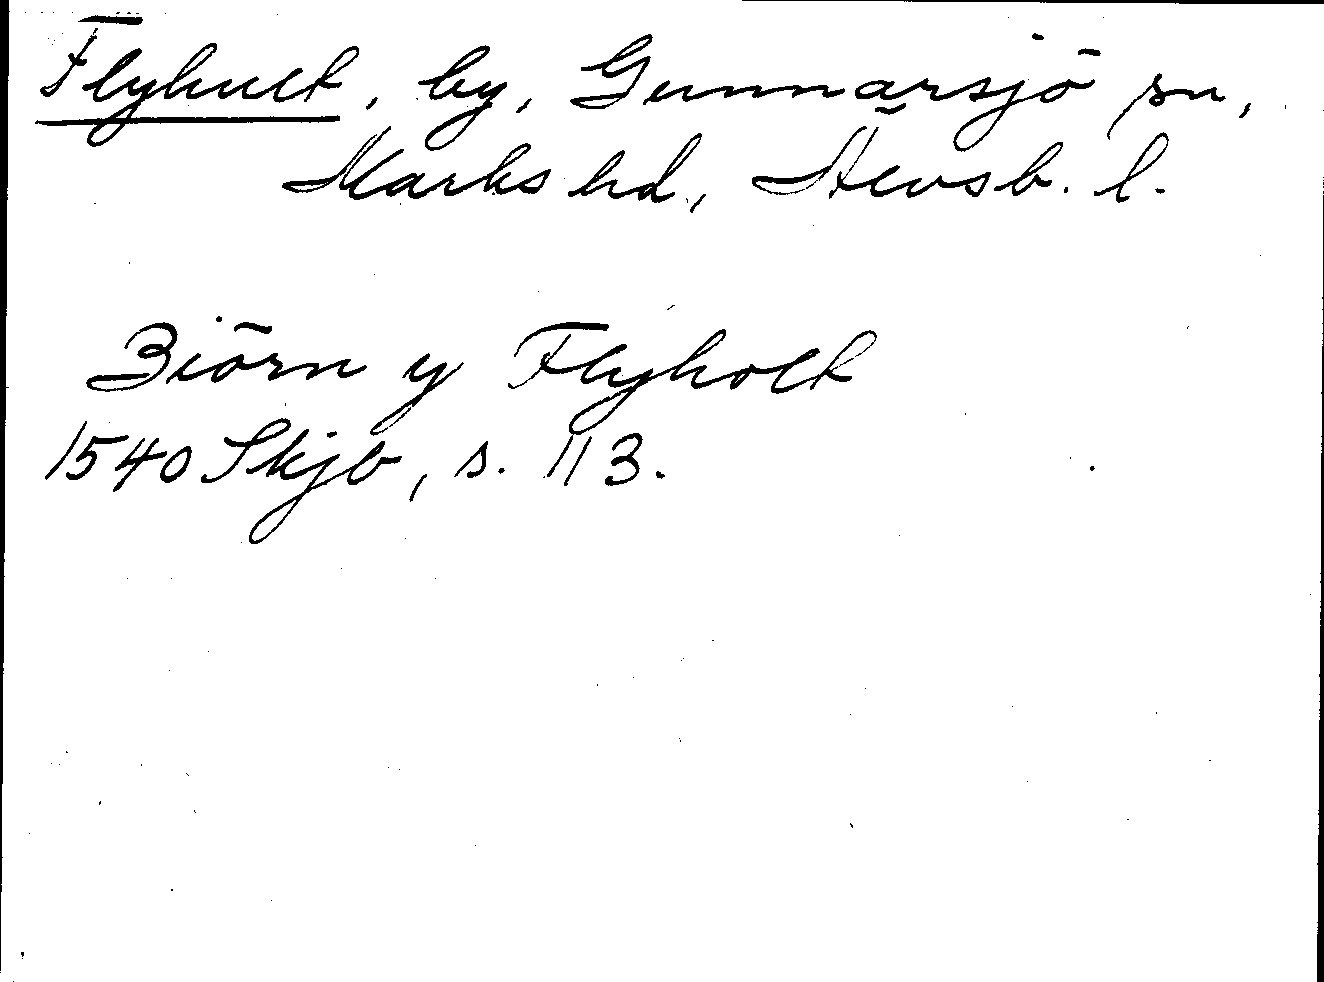 Flyhult, by, Gunnarsjö sn,
Marks hd, Älvsb. l.
Biörn y Flyholt
1540 Skjb, s. 113.